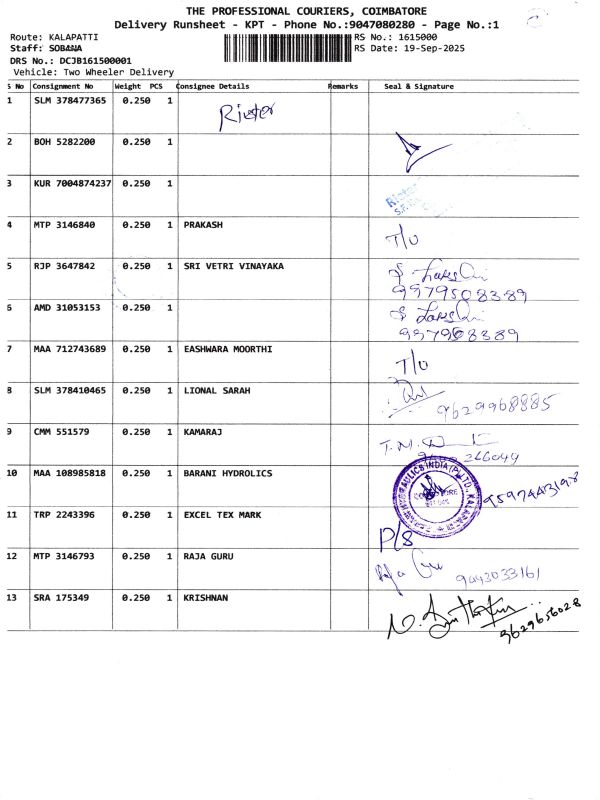 THE PROFESSIONAL COURIERS, COIMBATORE
Delivery Runsheet - KPT - Phone No.:9047080280 - Page No.:1
Route: KALAPATTI RS No.: 1615000
Staff: SOBANA RS Date: 19-Sep-2025
DRS No.: DCJB161500001
Vehicle: Two Wheeler Delivery
S No Consignment No Weight PCS Consignee Details Remarks Seal & Signature
1 SLM 378477365 0.250 1 Rieter
2 BOH 5282200 0.250 1
3 KUR 7004874237 0.250 1 Rieter
4 MTP 3146840 0.250 1 PRAKASH T/O
5 RJP 3647842 0.250 1 SRI VETRI VINAYAKA
9979508389
6 AMD 31053153 0.250 1
997908389
7 MAA 712743689 0.250 1 EASHWARA MOORTHI T/O
8 SLM 378410465 0.250 1 LIONAL SARAH 9629968885
9 CMM 551579 0.250 1 KAMARAJ T.M.
10 MAA 108985818 0.250 1 BARANI HYDROLICS
HYDRAULICS INDIA (P) LTD. KALAPATTI
11 TRP 2243396 0.250 1 EXCEL TEX MARK P/S
12 MTP 3146793 0.250 1 RAJA GURU Raja Guru 9043033161
13 SRA 175349 0.250 1 KRISHNAN
9629656028